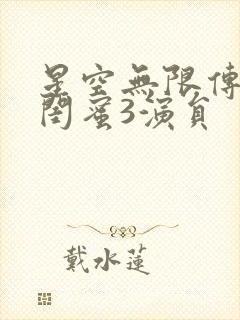 星空無限傳
閨蜜3-演員
戴水蓮